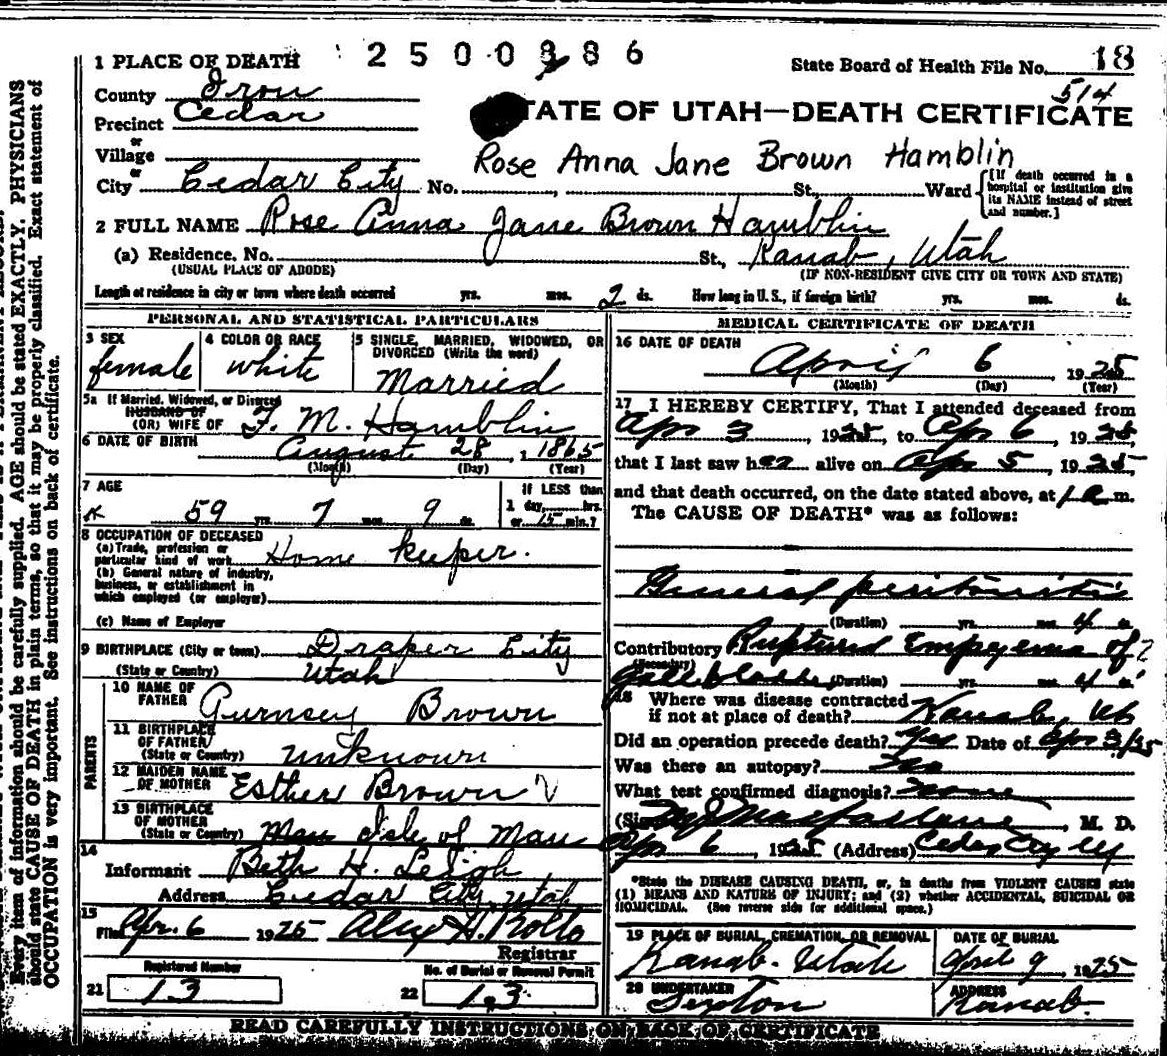 1 PLACE OF DEATH 2500386 State Board of Health File No. 18
514
County Iron
STATE OF UTAH—DEATH CERTIFICATE
Precinct Cedar
or
Village
Rose Anna Jane Brown Hamblin
or
City Cedar City No. , St., Ward [If death occurred in a hospital or institution give its NAME instead of street and number.]
2 FULL NAME Rose Anna Jane Brown Hamblin
(a) Residence. No. St., Kanab, Utah
(USUAL PLACE OF ABODE) (IF NON-RESIDENT GIVE CITY OR TOWN AND STATE)
Length of residence in city or town where death occurred yrs. mos. 2 ds. How long in U. S., if foreign birth? yrs. mos. ds.
PERSONAL AND STATISTICAL PARTICULARS
3 SEX female
4 COLOR OR RACE white
5 SINGLE, MARRIED, WIDOWED, OR
DIVORCED (Write the word)
Married
5a If Married, Widowed, or Divorced
HUSBAND OF
(OR) WIFE OF F. M. Hamblin
6 DATE OF BIRTH August 28, 1865
(Month) (Day) (Year)
7 AGE
59 yrs. 7 mos. 9 ds.
If LESS than
1 day, hrs.
or 15 min.?
8 OCCUPATION OF DECEASED
(a) Trade, profession or
particular kind of work Home keeper.
(b) General nature of industry,
business, or establishment in
which employed (or employer)
(c) Name of Employer
9 BIRTHPLACE (City or town) Draper City
(State or Country) Utah
PARENTS
10 NAME OF
FATHER Gurnsey Brown
11 BIRTHPLACE
OF FATHER
(State or Country) unknown
12 MAIDEN NAME
OF MOTHER Esther Brown
13 BIRTHPLACE
OF MOTHER
(State or Country) Isle of Man
14
Informant Beth H. Leigh
Address Cedar City, Utah
15
Filed Apr. 6 1925 Alex H. Rollo
Registrar
Registered Number
21 13
No. of Burial or Removal Permit
22 13
MEDICAL CERTIFICATE OF DEATH
16 DATE OF DEATH
April 6 1925
(Month) (Day) (Year)
17 I HEREBY CERTIFY, That I attended deceased from
Apr 3, 1925, to Apr 6, 1925,
that I last saw her alive on Apr 5, 1925,
and that death occurred, on the date stated above, at 1 a m.
The CAUSE OF DEATH* was as follows:
General peritonitis
(Duration) yrs. 4 ds.
Contributory Ruptured Empyema of
(Secondary)
Gall bladder (Duration) yrs. 4 ds.
18 Where was disease contracted
if not at place of death? Kanab, Ut
Did an operation precede death? Yes Date of Apr 3/25
Was there an autopsy? No
What test confirmed diagnosis? None
(Signed) Macfarlane, M. D.
Apr 6, 1925 (Address) Cedar City
*State the DISEASE CAUSING DEATH, or, in deaths from VIOLENT CAUSES state
(1) MEANS AND NATURE OF INJURY; and (2) whether ACCIDENTAL, SUICIDAL OR
HOMICIDAL. (See reverse side for additional space.)
19 PLACE OF BURIAL, CREMATION, OR REMOVAL
Kanab. Utah
DATE OF BURIAL
April 9, 1925
20 UNDERTAKER
Sexton
ADDRESS
Kanab.
READ CAREFULLY INSTRUCTIONS ON BACK OF CERTIFICATE
Every item of information should be carefully supplied. AGE should be stated EXACTLY. PHYSICIANS
should state CAUSE OF DEATH in plain terms, so that it may be properly classified. Exact statement of
OCCUPATION is very important. See instructions on back of certificate.